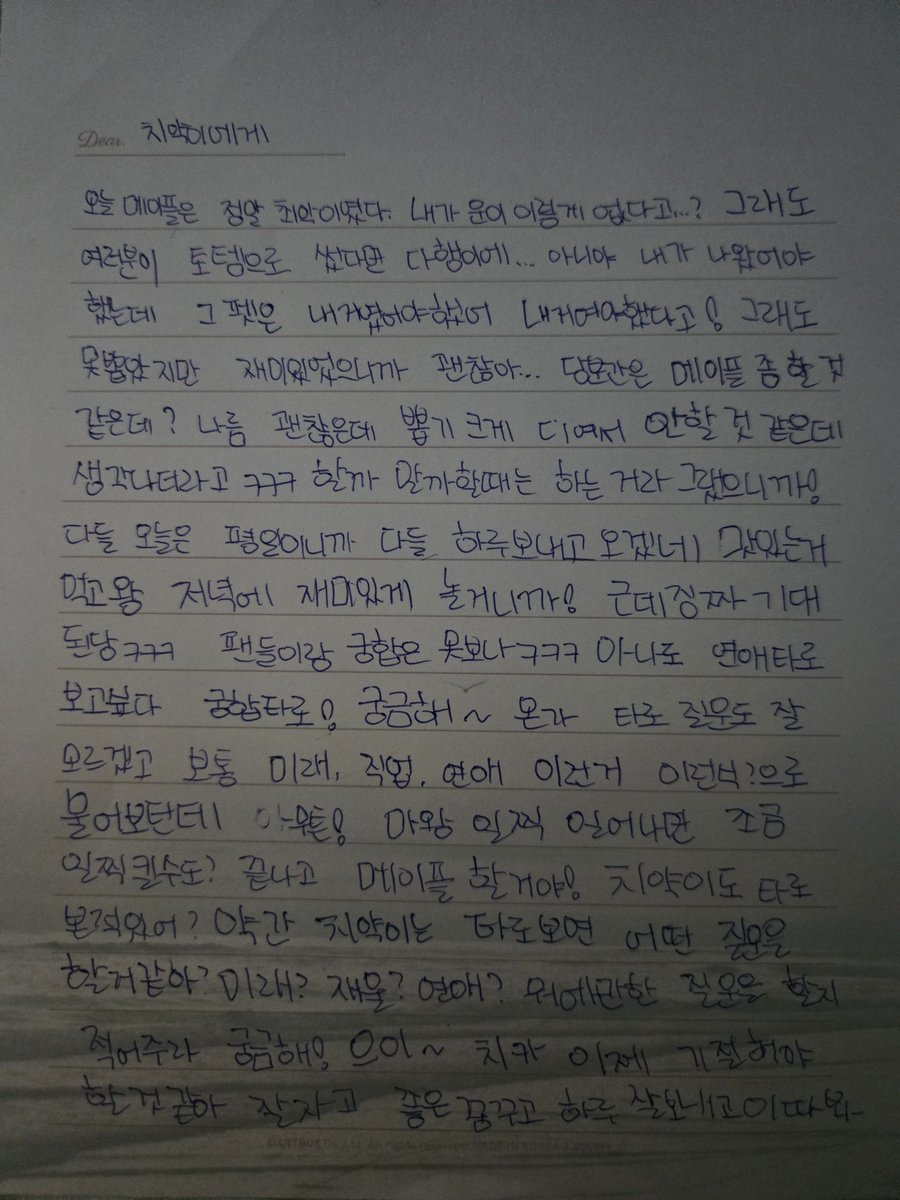 Dear. 치약이에게
오늘 메이플은 정말 최악이었다. 내가 운이 이렇게 없다고...? 그래도
여러분이 토템으로 썼다면 다행이에... 아니야 내가 나왔어야
했는데 그 펫은 내거였어야했어 내거여야했다고! 그래도
못뽑았지만 재미있었으니까 괜찮아... 당분간은 메이플 좀 할 것
같은데? 나름 괜찮은데 뽑기 크게 디여서 안할 것 같은데
생각나더라고 ㅋㅋㅋ 할까 말까할때는 하는 거라 그랬으니까!
다들 오늘은 평일이니까 다들 하루보내고 오겠네 맛있는거
먹고왕 저녁에 재미있게 놀거니까! 근데징짜 기대
된당ㅋㅋㅋ 팬들이랑 궁합은 못보나ㅋㅋㅋ 아나로 연애타로
보고싶다 궁합타로! 궁금해~ 몬가 타로 질문도 잘
모르겠고 보통 미래, 직업, 연애 이런거 이런식?으로
물어보던데 아웅! 마왕 일찍 일어나면 조금
일찍킬수도? 끝나고 메이플 할거야! 치약이도 타로
본적있어? 약간 치약이는 타로보면 어떤 질문을
할거같아? 미래? 재물? 연애? 뭐에관한 질문을 할지
적어주라 궁금해! 으이~ 치카 이제 기절해야
할것같아 잘자고 좋은 꿈꾸고 하루 잘보내고이따봐~